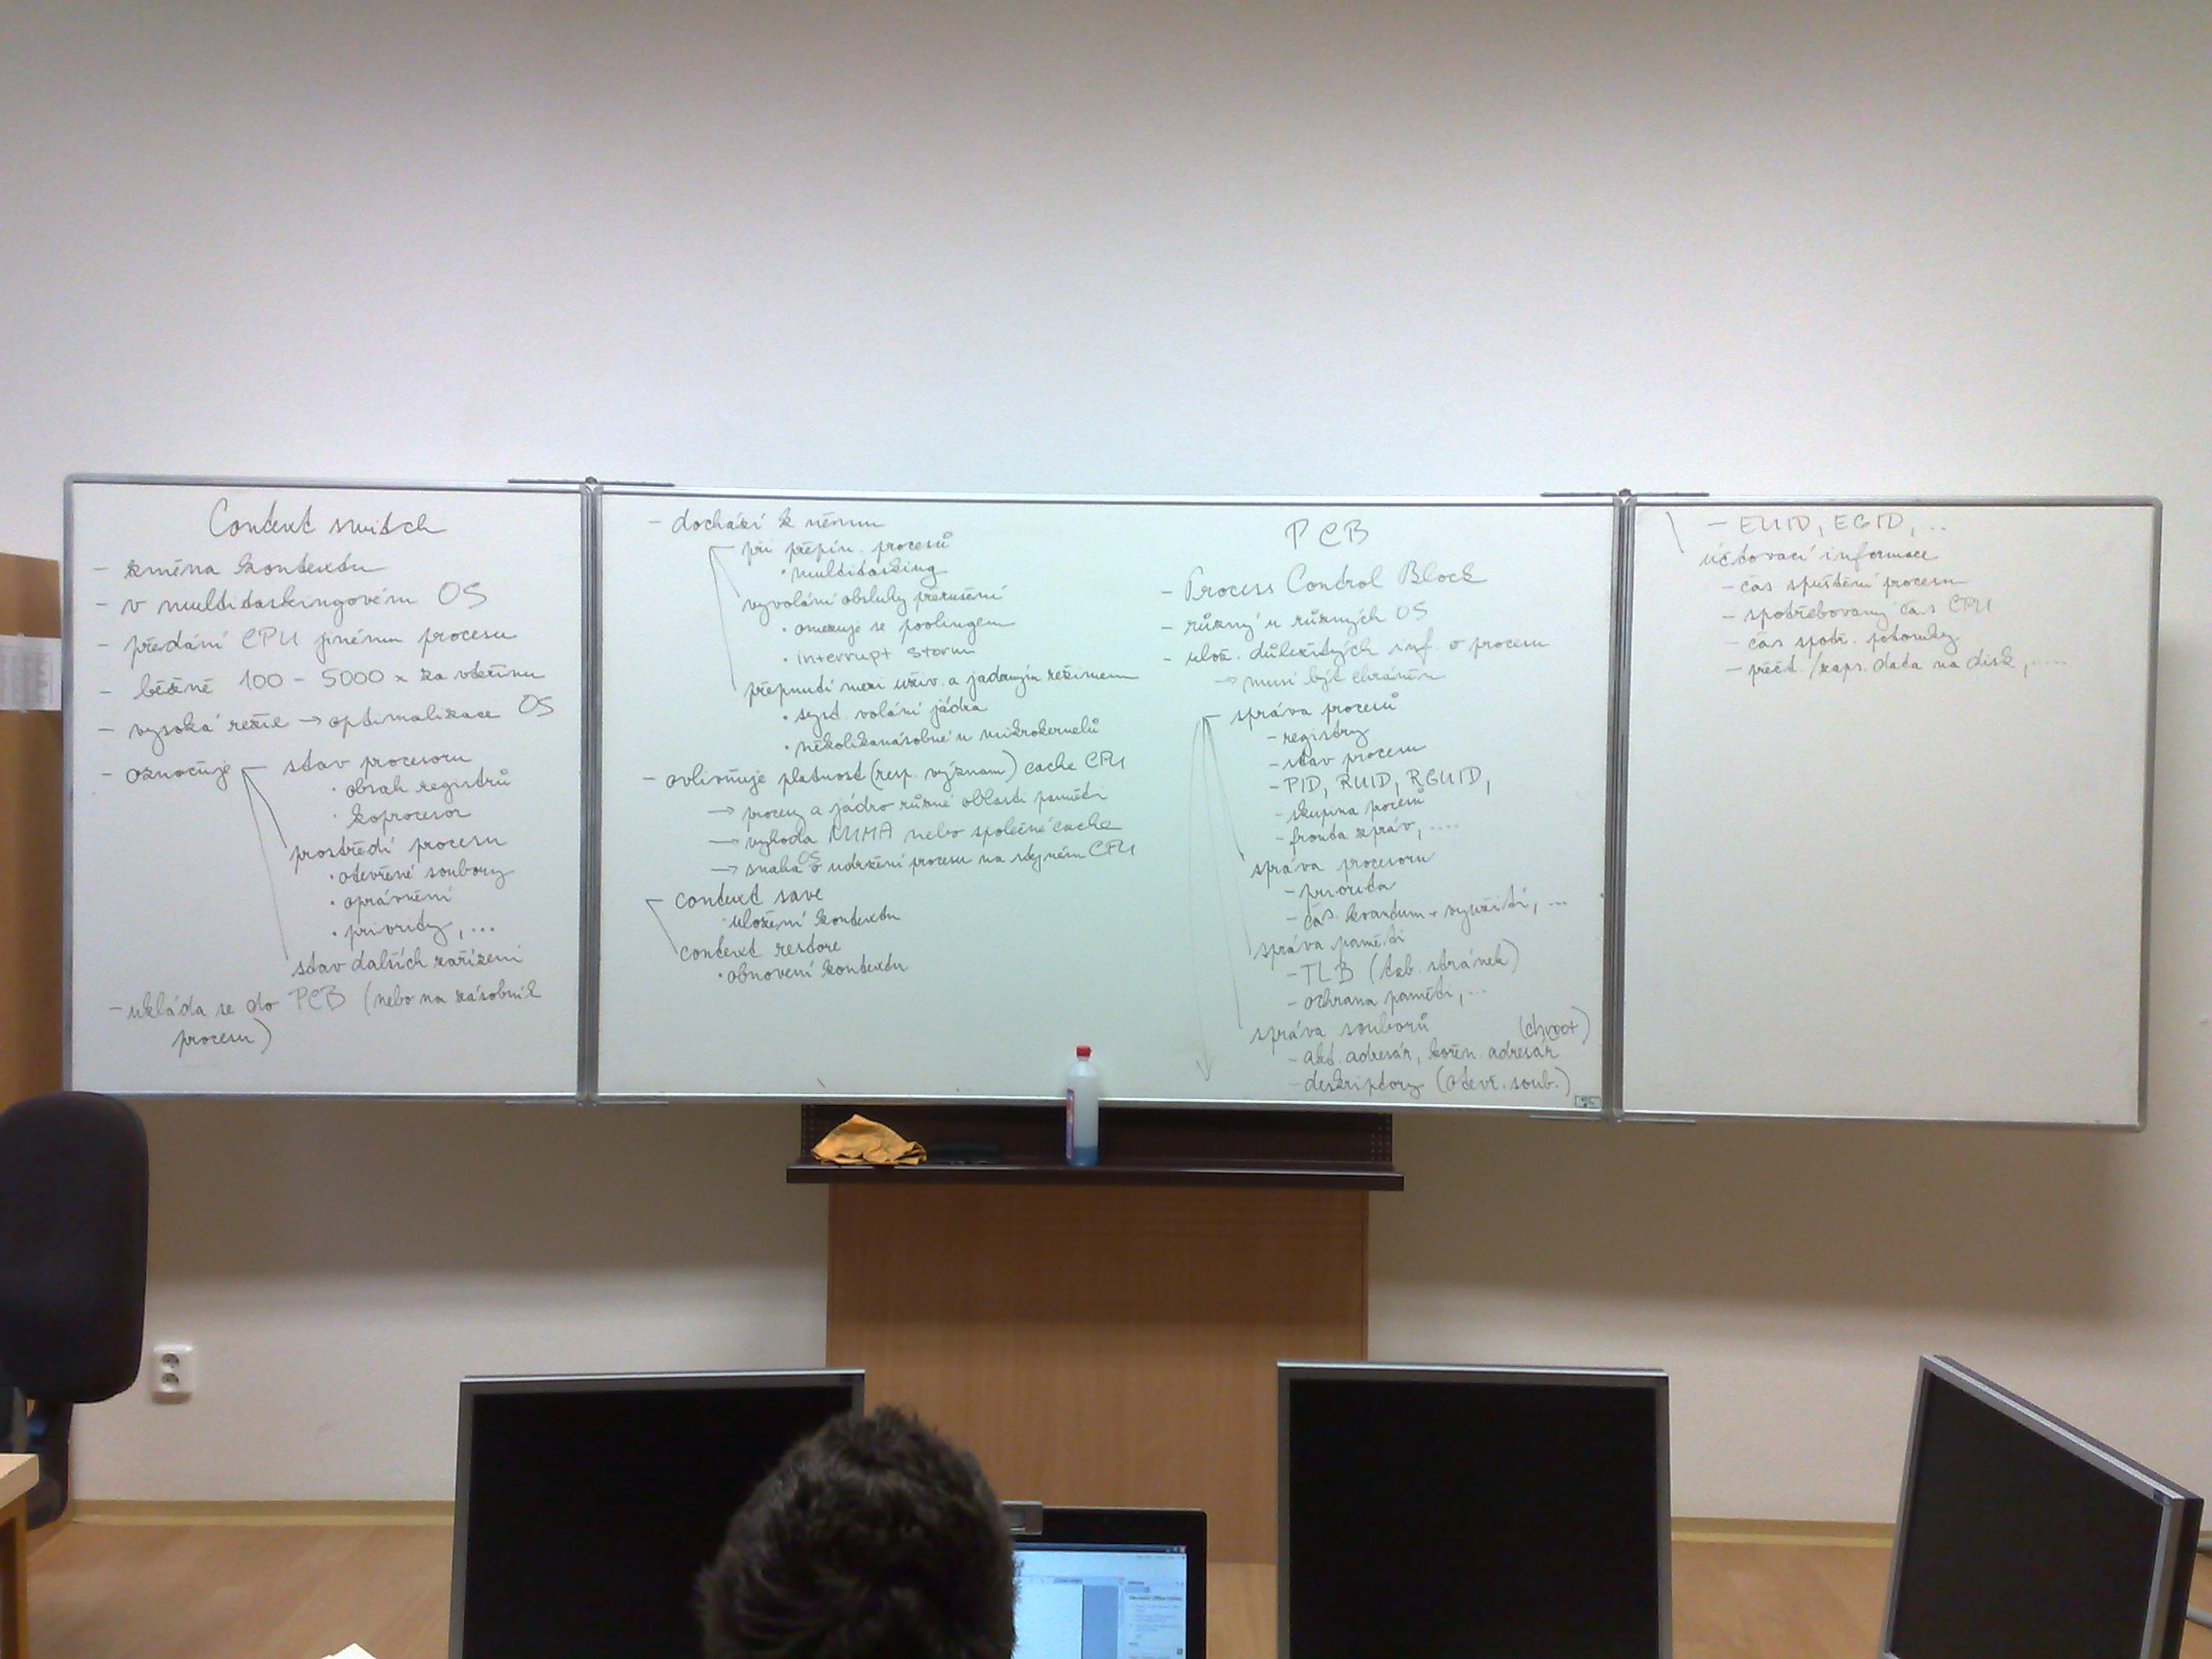 Context switch
- změna kontextu
- v multitaskingovém OS
- předání CPU jinému procesu
- běžně 100 - 5000 x za vteřinu
- vysoká režie → optimalizace OS
- označuje
stav procesoru
· obsah registrů
· koprocesor
prostředí procesu
· otevřené soubory
· oprávnění
· priority, ...
stav dalších zařízení
- ukládá se do PCB (nebo na zásobník
procesu)
- dochází k němu
při přepín. procesů
· multitasking
vyvolání obsluhy přerušení
· omezuje se poolingem
· interrupt storm
přepnutí mezi uživ. a jaderným režimem
· syst. volání jádra
· několikanásobné u mikrokernelů
- ovlivňuje platnost (resp. význam) cache CPU
→ procesy a jádro různé oblasti paměti
→ výhoda NUMA nebo společné cache
→ snaha OS o udržení procesu na stejném CPU
context save
· uložení kontextu
context restore
· obnovení kontextu
PCB
- Process Control Block
- různý u různých OS
- ulož. důležitých inf. o procesu
→ musí být chráněn
správa procesů
- registry
- stav procesu
- PID, RUID, RGUID,
- skupina procesů
- fronta zpráv, ....
správa procesoru
- priorita
- čas. kvantum + využití, ...
správa paměti
- TLB (tab. stránek)
- ochrana paměti, ...
správa souborů (chroot)
- akt. adresář, kořen. adresář
- deskriptory (otevř. soub.)
- EUID, EGID, ..
účtovací informace
- čas spuštění procesu
- spotřebovaný čas CPU
- čas spotř. potomky
- přečt./zaps. data na disk, .....